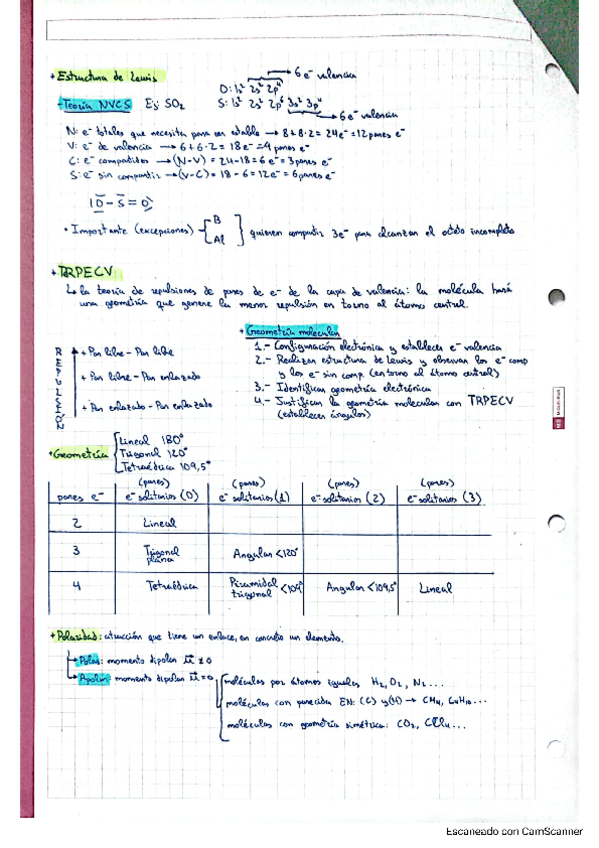 + Estructura de Lewis
→ 6 e⁻ valencia
O: 1s² 2s² 2p⁴
- Teoría NVCS Ej: SO₂
S: 1s² 2s² 2p⁶ 3s² 3p⁴
→ 6 e⁻ valencia
N: e⁻ totales que necesita para ser estable → 8+8·2 = 24e⁻ = 12 pares e⁻
V: e⁻ de valencia → 6+6·2 = 18 e⁻ = 9 pares e⁻
C: e⁻ compartidos → (N-V) = 24-18 = 6 e⁻ = 3 pares e⁻
S: e⁻ sin compartir → (V-C) = 18-6 = 12e⁻ = 6 pares e⁻
O-S=O
• Importante (excepciones) B Al quieren compartir 3e⁻ para alcanzar el octeto incompleto
+ TRPECV
↳ la teoría de repulsiones de pares de e⁻ de la capa de valencia: la molécula hará
una geometría que genere la menor repulsión en torno al átomo central.
+ Geometría molecular
REPULSIÓN
+ Par libre - Par libre
+ Par libre - Par enlazado
+ Par enlazado - Par enlazado
1.- Configuración electrónica y establecer e⁻ valencia
2.- Realizar estructura de Lewis y observar los e⁻ comp
y los e⁻ sin comp. (entorno al átomo central)
3.- Identificar geometría electrónica
4.- Justificar la geometría molecular con TRPECV
(establecer ángulos)
+ Geometría
Lineal 180°
Trigonal 120°
Tetraédrica 109,5°
(pares) (pares) (pares) (pares)
pares e⁻ e⁻ solitarios (0) e⁻ solitarios (1) e⁻ solitarios (2) e⁻ solitarios (3)
2 Lineal
3 Trigonal plana Angular <120°
4 Tetraédrica Piramidal trigonal <109° Angular <109,5° Lineal
+ Polaridad: atracción que tiene un enlace, en concreto un elemento.
→ Polar: momento dipolar μ ≠ 0
→ Apolar: momento dipolar μ = 0
moléculas por átomos iguales H₂, O₂, N₂...
moléculas con parecida EN: (C) y (H) → CH₄, C₄H₁₀...
moléculas con geometría simétrica: CO₂, CCl₄...
Escaneado con CamScanner